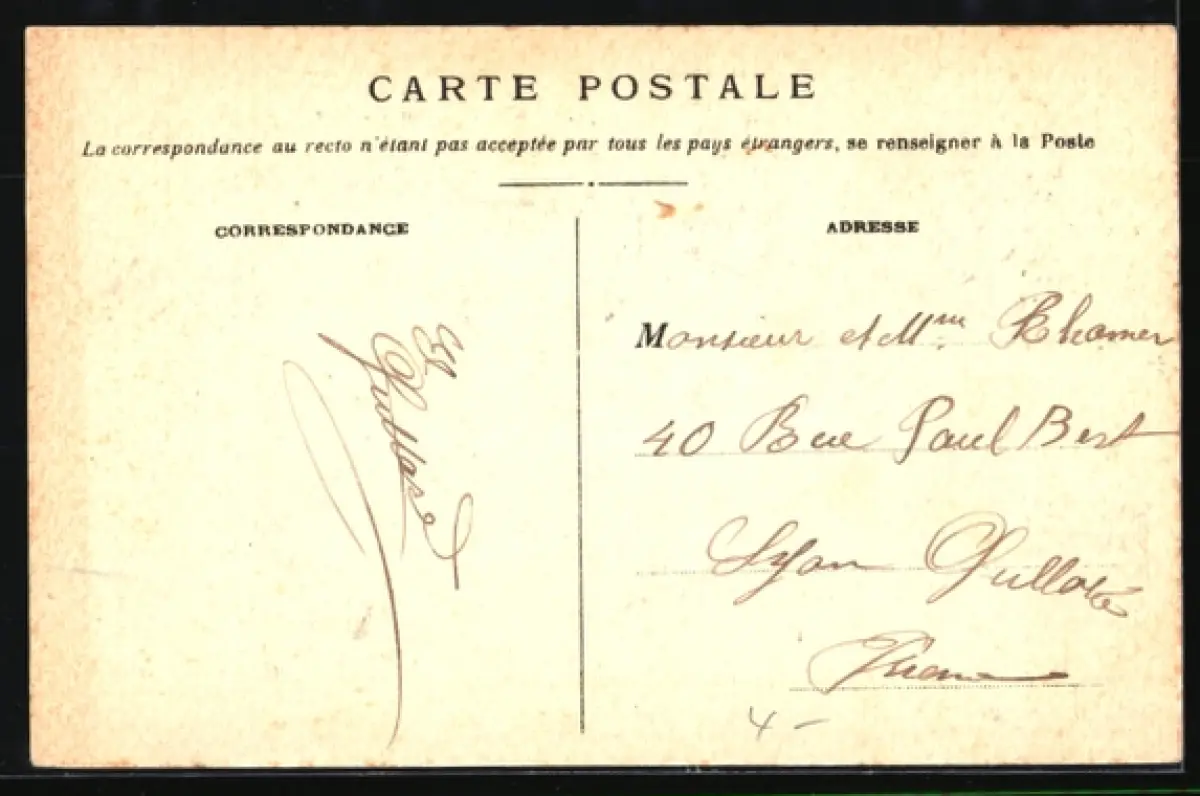 CARTE POSTALE
La correspondance au recto n'étant pas acceptée par tous les pays étrangers, se renseigner à la Poste
CORRESPONDANCE
ADRESSE
Monsieur et Mme
40 Rue Paul Bert
Lyon
4 -